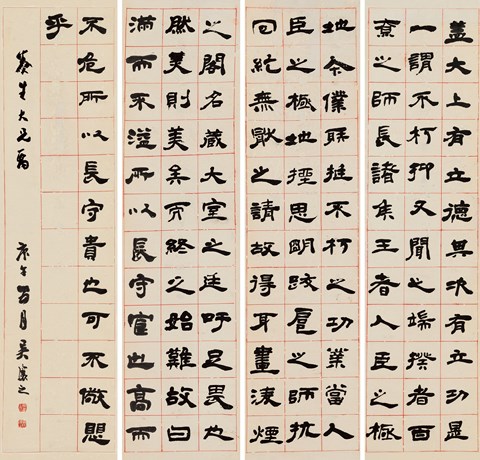 蓋大上有立德其次有立功是
一謂不朽抑又聞之端揆者百
寮之師長諸侯王者人臣之極
地今僕射挺不朽之功業當人
臣之極地挫思明跋扈之師抗
回紇無厭之請故得身畫淩煙
之閣名藏大室之廷吁足畏也
然美則美矣而終之始難故曰
滿而不溢所以長守富也高而
不危所以長守貴也可不儆懼
乎
生大兄屬 庚午 月吳 之